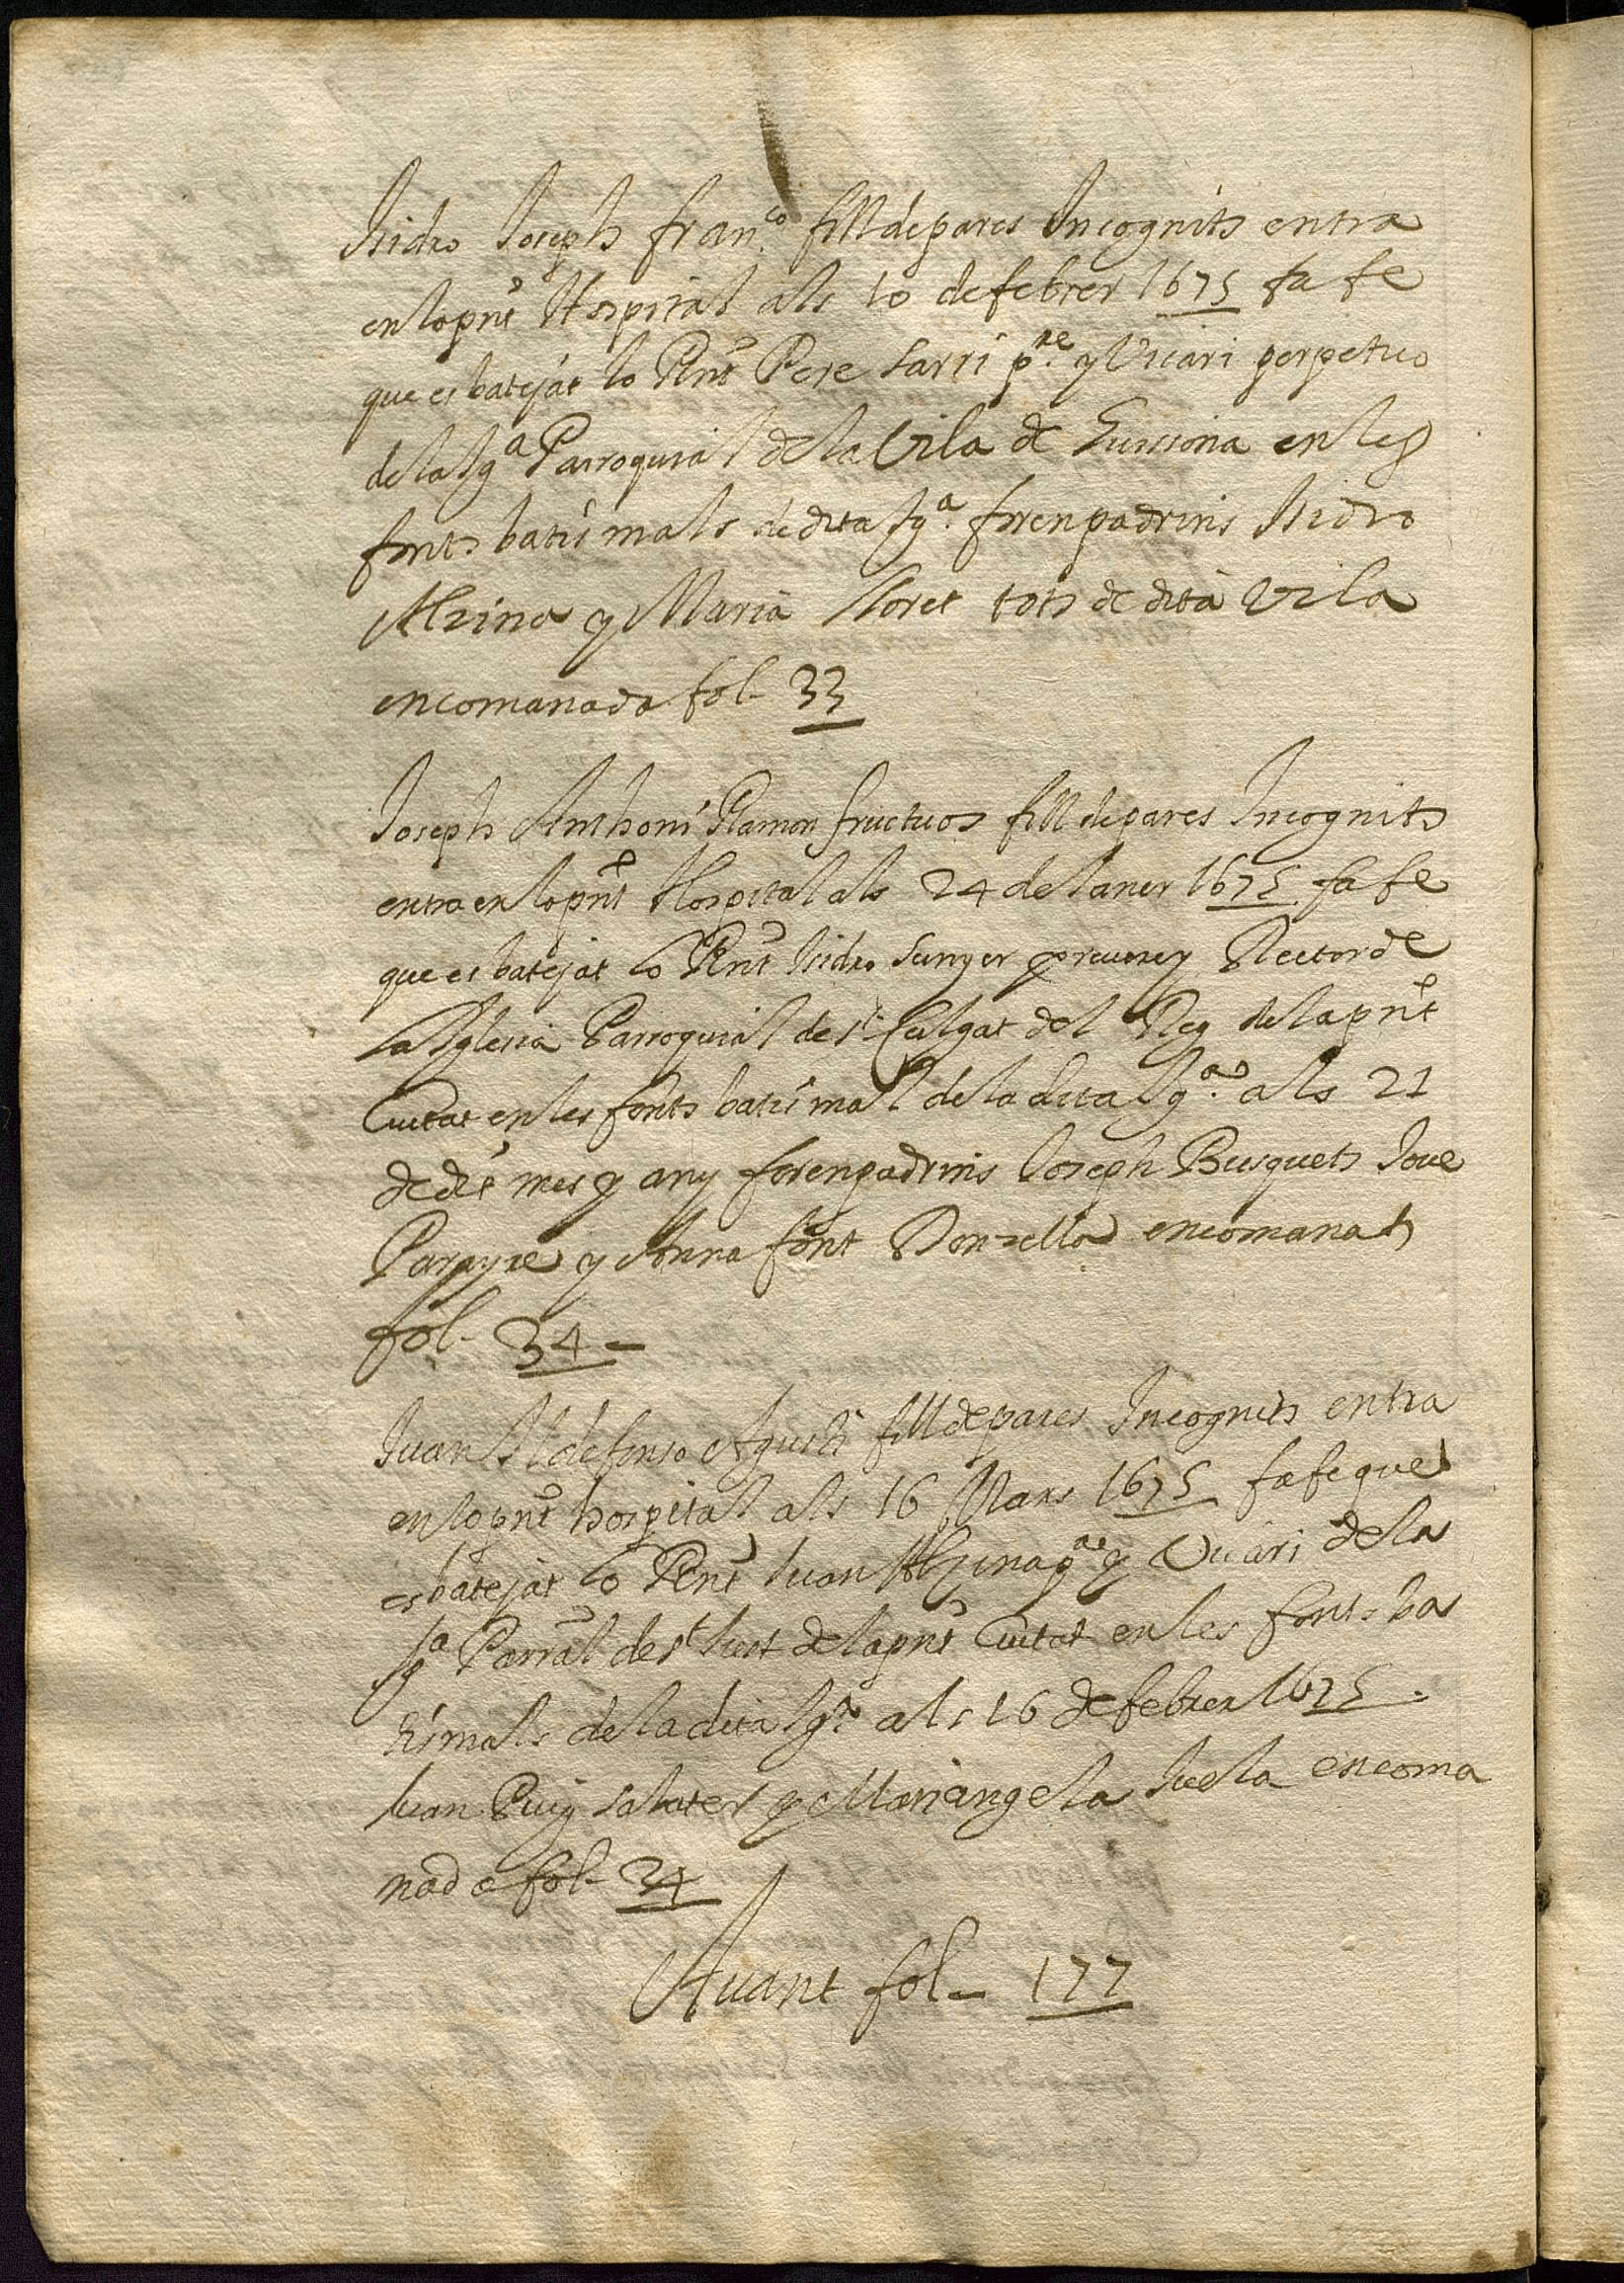 Isidro Joseph fran.co fill de pares Incognits entra
en lo pnt Hospital als 10 de febrer 1675 fa fe
que es batejat lo Rnt Pere Sarri p.re y Vicari perpetuo
de la Iga Parroquial de la Vila de Guissona en les
fonts batismals de dita Iga. foren padrins Isidro
Alzina y Maria lloret tots de dita Vila
encomanada fol- 33
Joseph Anthoni Ramon fructuos fill de pares Incognits
entra en lo pnt Hospital als 24 de Janer 1675 fa fe
que es batejat lo Rnt Isidro Sunyer prevere y Rector de
la Iglesia Parroquial de St Culgat del Rey de la pnt
Ciutat en les fonts batismal de la dita Iga. als 21
de dit mes y any foren padrins Joseph Busquets Jove
Parayre y Anna font Donzella encomanat
fol- 34 -
Juan Ildefonso Agusti fill de pares Incognits entra
en lo pnt hospital als 16 Mars 1675 fa fe que
es batejat lo Rnt Juan Alzina p.re y Vicari de la
Iga Parral de St Just de la pnt Ciutat en les fonts ba
tismals de la dita Iga. als 16 de febrer 1675.
Juan Puig sabater y Mariangela Juela encoma
nada fol- 34
Avant fol- 177